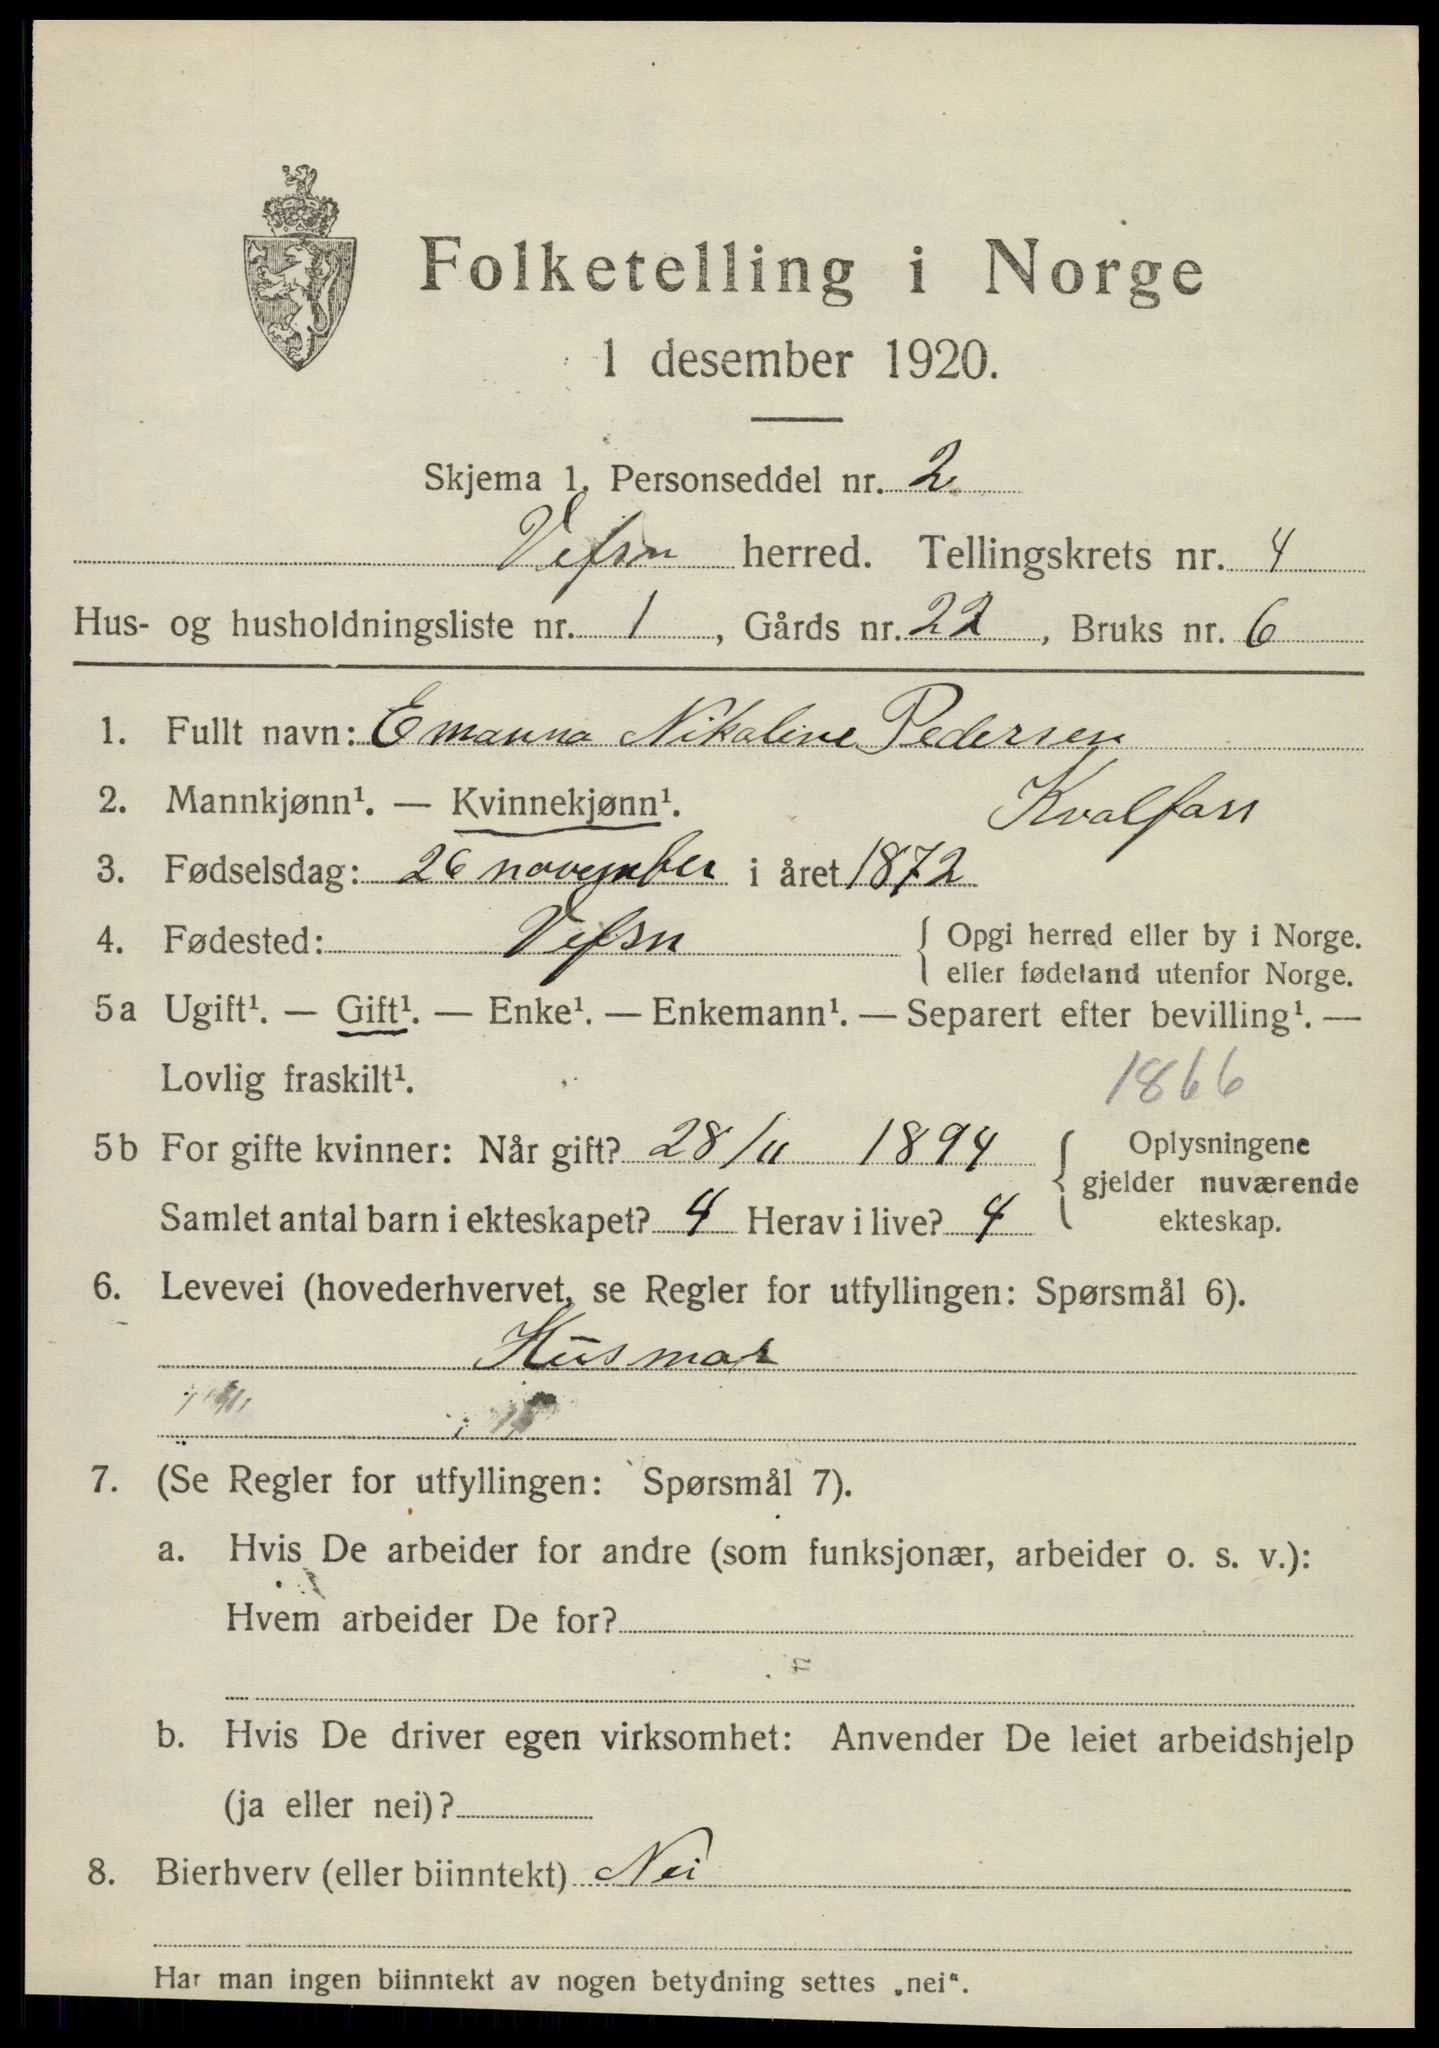 Folketelling i Norge
1 desember 1920.
Skjema 1. Personseddel nr. 2
Vefsn herred. Tellingskrets nr. 4
Hus- og husholdningsliste nr. 1, Gårds nr. 22, Bruks nr. 6
1. Fullt navn: Emanna Nikoline Pedersen
2. Mannkjønn¹. — Kvinnekjønn¹. Kvalfors
3. Fødselsdag: 26 november i året 1872
4. Fødested: Vefsn { Opgi herred eller by i Norge.
eller fødeland utenfor Norge.
5a Ugift¹. — Gift¹. — Enke¹. — Enkemann¹. — Separert efter bevilling¹. —
Lovlig fraskilt¹. 1866
5b For gifte kvinner: Når gift? 28/11 1894 { Oplysningene
gjelder nuværende
Samlet antal barn i ekteskapet? 4 Herav i live? 4 ekteskap.
6. Levevei (hovederhvervet, se Regler for utfyllingen: Spørsmål 6).
Husmor
7. (Se Regler for utfyllingen: Spørsmål 7).
a. Hvis De arbeider for andre (som funksjonær, arbeider o. s. v.):
Hvem arbeider De for?
b. Hvis De driver egen virksomhet: Anvender De leiet arbeidshjelp
(ja eller nei)?
8. Bierhverv (eller biinntekt) Nei
Har man ingen biinntekt av nogen betydning settes „nei“.